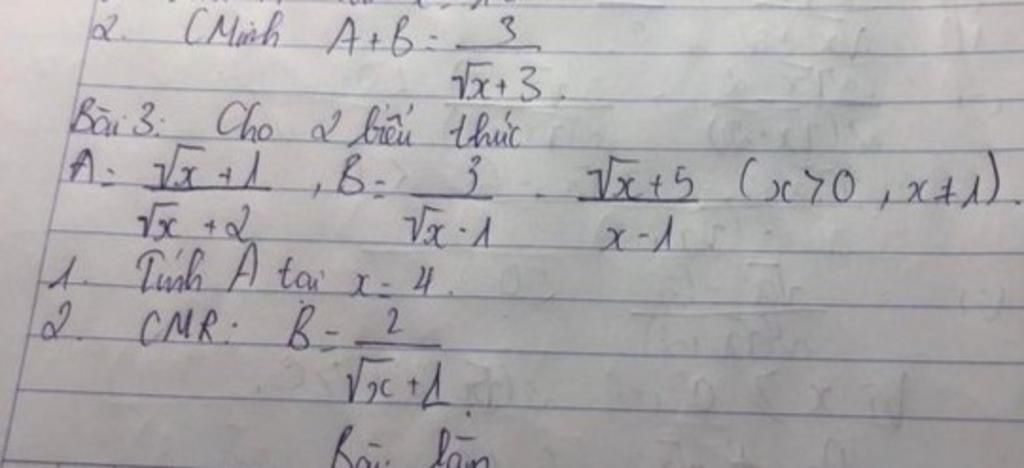 2. CMinh A + B = 3/(√x + 3).
Bài 3: Cho 2 biểu thức
A = (√x + 1)/(√x + 2), B = 3/(√x - 1) - (√x + 5)/(x - 1) (x > 0, x ≠ 1).
1. Tính A tại x = 4.
2. CMR: B = 2/(√x + 1).
Bài làm